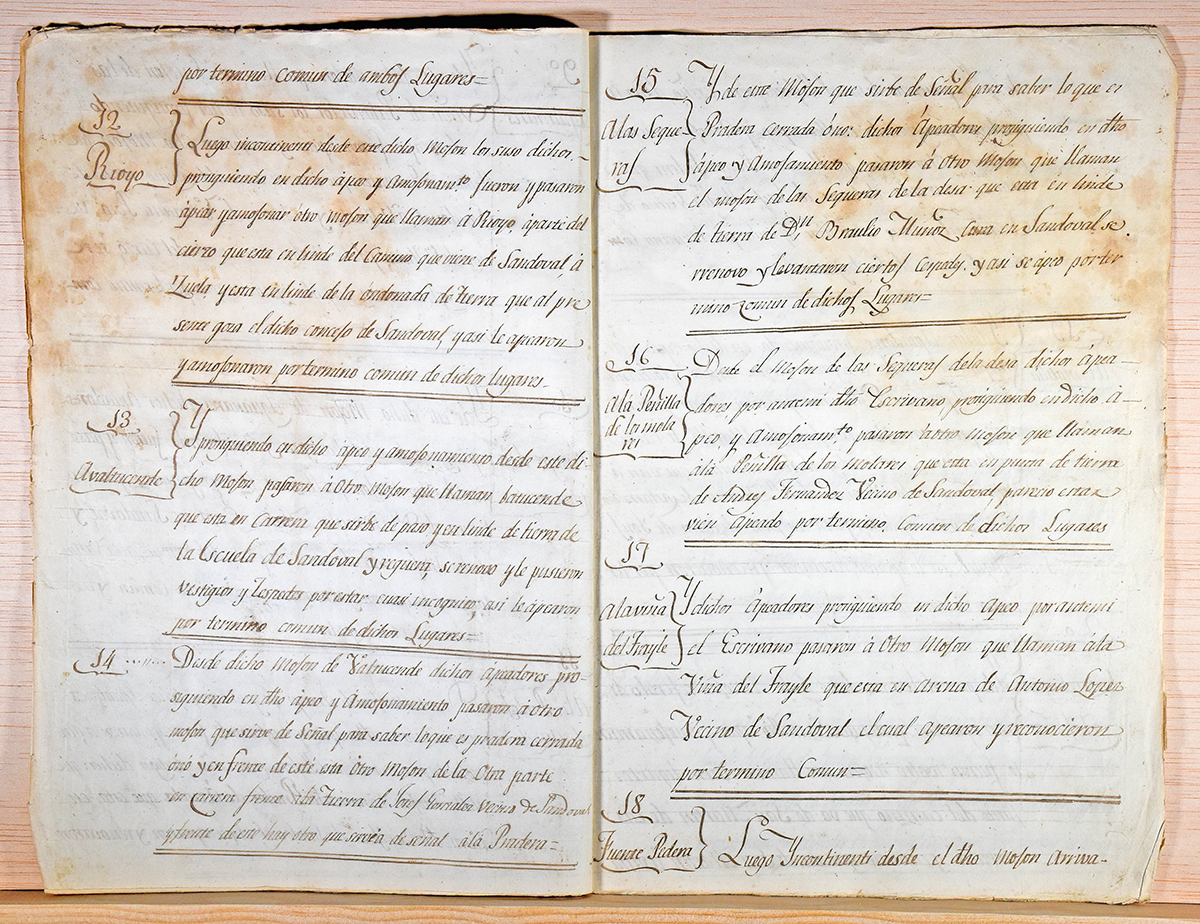 por termino comun de ambos Lugares=
12
Rioyo
Luego incontinenti desde este dicho Moson los suso dichos,
prosiguiendo en dicho àpeo y Amosonam.to fueron y pasaron
àpear y amosonar òtro moson que llaman à Rioyo, àparte del
cierzo que esta en linde del Camino que viene de Sandoval, à
Zuela, y esta en linde de la òndonada de tierra que al pre
sente goza el dicho concejo de Sandoval, y asi le àpearon
y amosonaron por termino comun de dichos lugares=
13
Avalnuende
Y prosiguiendo en dicho àpeo y amosonamiento desde este di
cho Moson pasaron à Otro Moson que llaman
que esta en Carrera que sirbe de paso y en linde de tierra de
la Escuela de Sandoval y reguera, se renovo y le pusieron
vestigios y Zespedes por estar cuasi incognito, asi le àpearon
por termino comun de dichos Lugares=
14
Desde dicho Moson de dichos àpeadores pro
siguiendo en dho àpeo y Amosonamiento pasaron à otro
moson que sirve de Señal para saber lo que es pradera cerrada
òno y en frente de este esta Otro Moson de la Otra parte
en carrera frente àla tierra de Josef Gonzalez vecino de Sandoval
y frente de este hay otro que servia de señal àla Pradera=
15
A las Segue
ras
Y de este Moson que sirbe de Señal para saber lo que es
Pradera cerrada òno: dichos Àpeadores prosiguiendo en dho
àpeo y Amosamiento pasaron à Otro Moson que llaman
el moson de las Segueras de la desa: que esta en linde
de tierra de Dn Braulio Muñoz Cura en Sandoval se.
rrenovo y levantaron ciertos Cespeds, y asi se àpeo por ter
mino comun de dichos Lugares=
16
A la Peñilla
de los mola
res
Deste el Moson de las Segueras de la desa dichos àpea-
dores por antemi dho Escrivano prosiguiendo en dicho à-
peo, y Amosonam.to pasaron à otro Moson que llaman
àla Peñilla de los Molares que esta en punta de tierra
de Andres Fernandez Vecino de Sandoval parecio estar
vien Àpeado por termino, Comun de dichos Lugares
17
A la viña
del Frayle
Y dichos Àpeadores prosiguiendo en dicho Àpeo por antemi
el Escrivano pasaron à Otro Moson que llaman àla
Viña del Frayle que esta en Arena de Antonio Lopez
Vecino de Sandoval el cual Apearon y reconocieron
por termino Comun=
18
Fuente Pedera
Luego Yncontinenti desde el dho Moson Arriva-